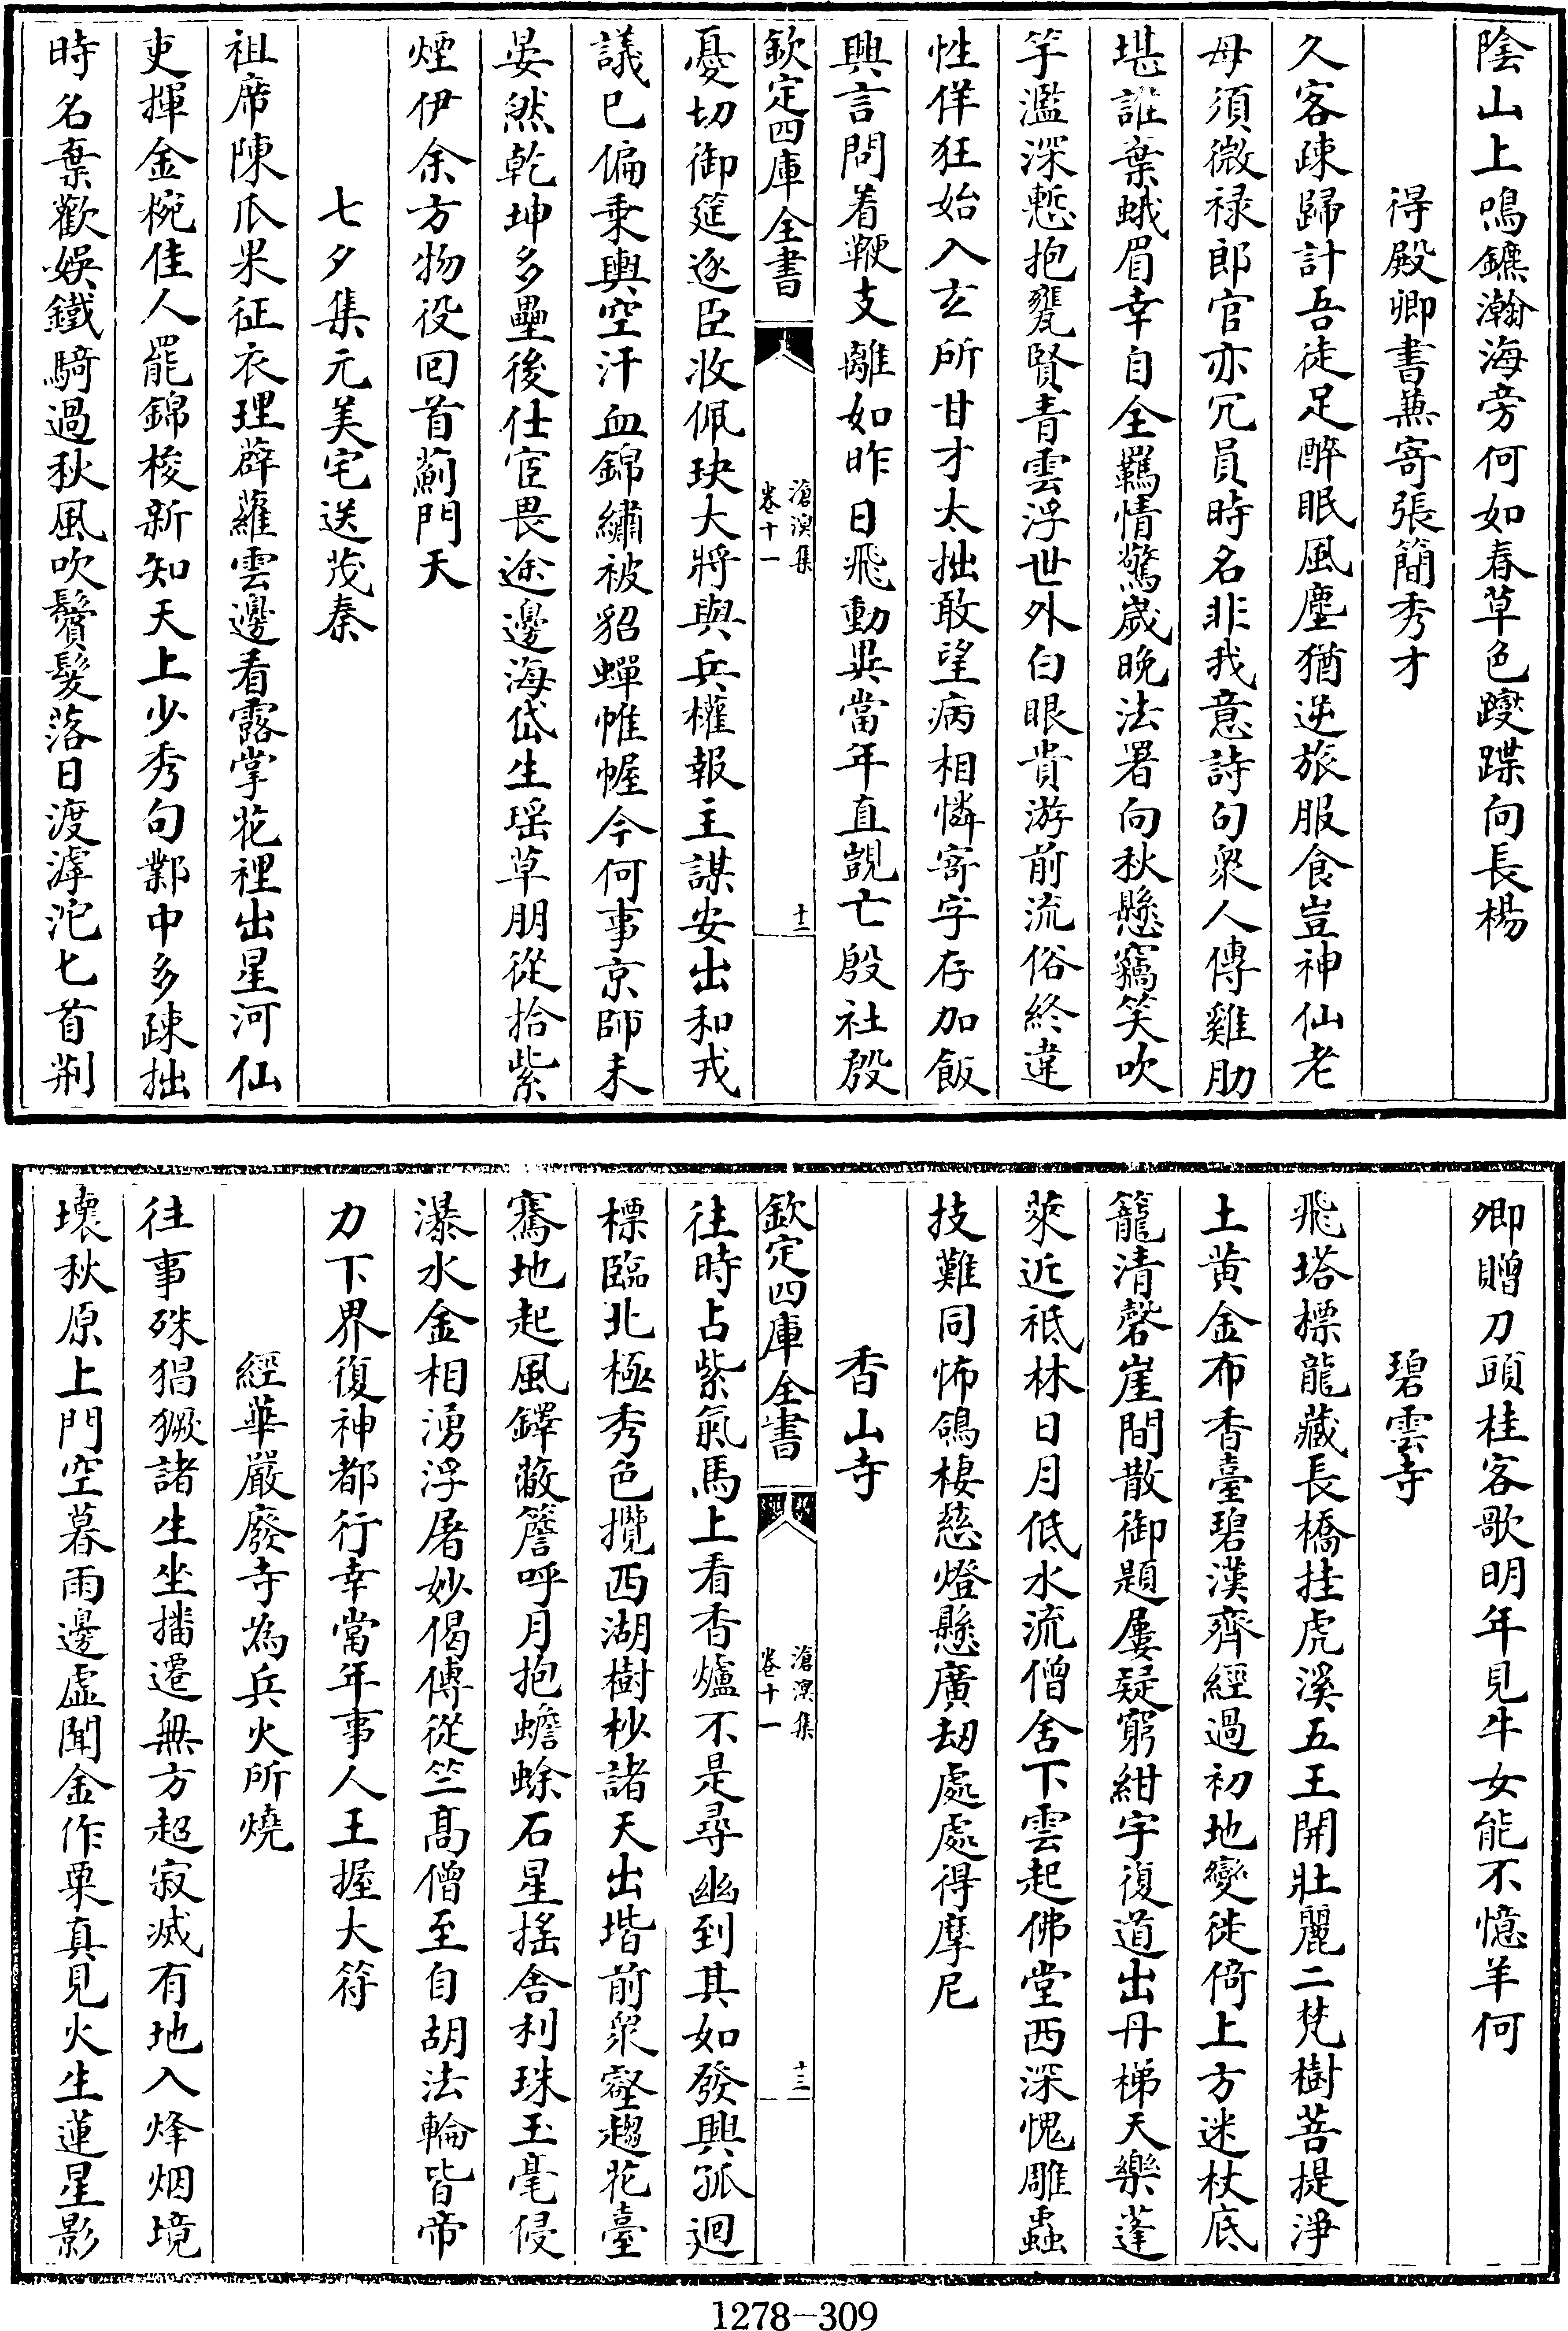 陰山上鳴鑣瀚海旁何如春草色躞蹀向長楊
得殿卿書兼寄張簡秀才
久客疎歸計吾徒足醉眠風塵猶逆旅服食豈神仙老
母須微禄郎官亦冗員時名非我意詩句衆人傳雞肋
堪誰棄蛾眉幸自全羈情驚歲晚法署向秋懸竊笑吹
竽濫深慙抱甕賢青雲浮世外白眼貴游前流俗終違
性佯狂始入玄所甘才太拙敢望病相憐寄字存加飯
興言問着鞭支離如昨日飛動異當年直覬亡殷社殷
欽定四庫全書
滄溟集
卷十一
十二
憂切御筵逐臣收佩玦大將與兵權報主謀安出和戎
議已偏乗輿空汗血錦繡被貂蟬帷幄今何事京師未
晏然乾坤多壘後仕宦畏途邊海岱生瑶草朋從拾紫
煙伊余方物役回首薊門天
七夕集元美宅送茂秦
祖席陳瓜果征衣理薜蘿雲邊看露掌花裡出星河仙
吏揮金椀佳人罷錦梭新知天上少秀句鄴中多疎拙
時名棄歡娛鐵騎過秋風吹鬢髮落日渡滹沱匕首荆
卿贈刀頭桂客歌明年見牛女能不憶羊何
碧雲寺
飛塔標龍藏長橋挂虎溪五王開壯麗二梵樹菩提淨
土黄金布香臺碧漢齊經過初地變徙倚上方迷杖底
籠清磬崖間散御題屢疑窮紺宇復道出丹梯天樂蓬
萊近祇林日月低水流僧舍下雲起佛堂西深愧雕蟲
技難同怖鴿棲慈燈懸廣刼處處得摩尼
香山寺
欽定四庫全書
滄溟集
卷十一
十三
往時占紫氣馬上看香爐不是尋幽到其如發興孤迴
標臨北極秀色攬西湖樹杪諸天出堦前衆壑趨花臺
騫地起風鐸蔽簷呼月抱蟾蜍石星摇舍利珠玉毫侵
瀑水金相湧浮屠妙偈傳從竺髙僧至自胡法輪皆帝
力下界復神都行幸當年事人王握大符
經華嚴廢寺為兵火所燒
往事殊猖獗諸生坐播遷無方超寂滅有地入烽烟境
壞秋原上門空暮雨邊虚聞金作粟真見火生蓮星影
1278-309